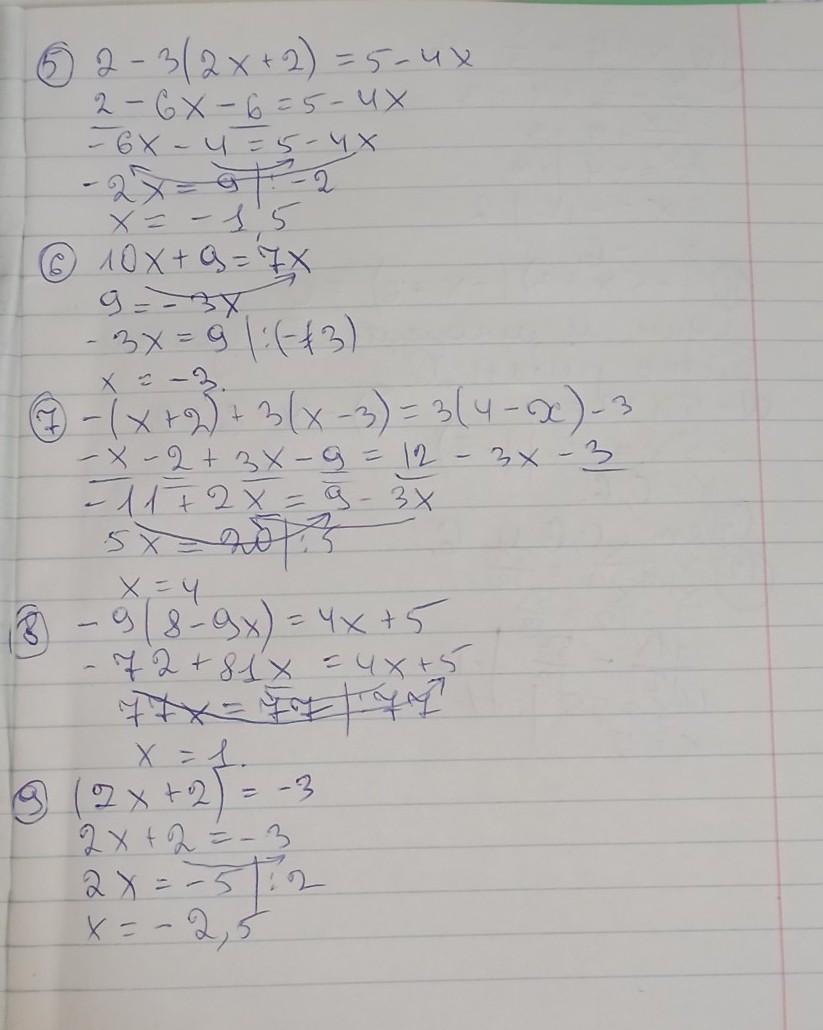 5 2 - 3(2x+2) = 5 - 4x
2 - 6x - 6 = 5 - 4x
- 6x - 4 = 5 - 4x
- 2x = 9 | : -2
x = - 1,5
6 10x + 9 = 7x
9 = - 3x
- 3x = 9 | : (-3)
x = -3.
7 -(x+2) + 3(x-3) = 3(4-x) - 3
-x - 2 + 3x - 9 = 12 - 3x - 3
- 11 + 2x = 9 - 3x
5x = 20 | : 5
x = 4
8 - 9(8-9x) = 4x + 5
- 72 + 81x = 4x + 5
77x = 77 | : 77
x = 1.
9 (2x+2) = -3
2x + 2 = - 3
2x = - 5 | : 2
x = - 2,5